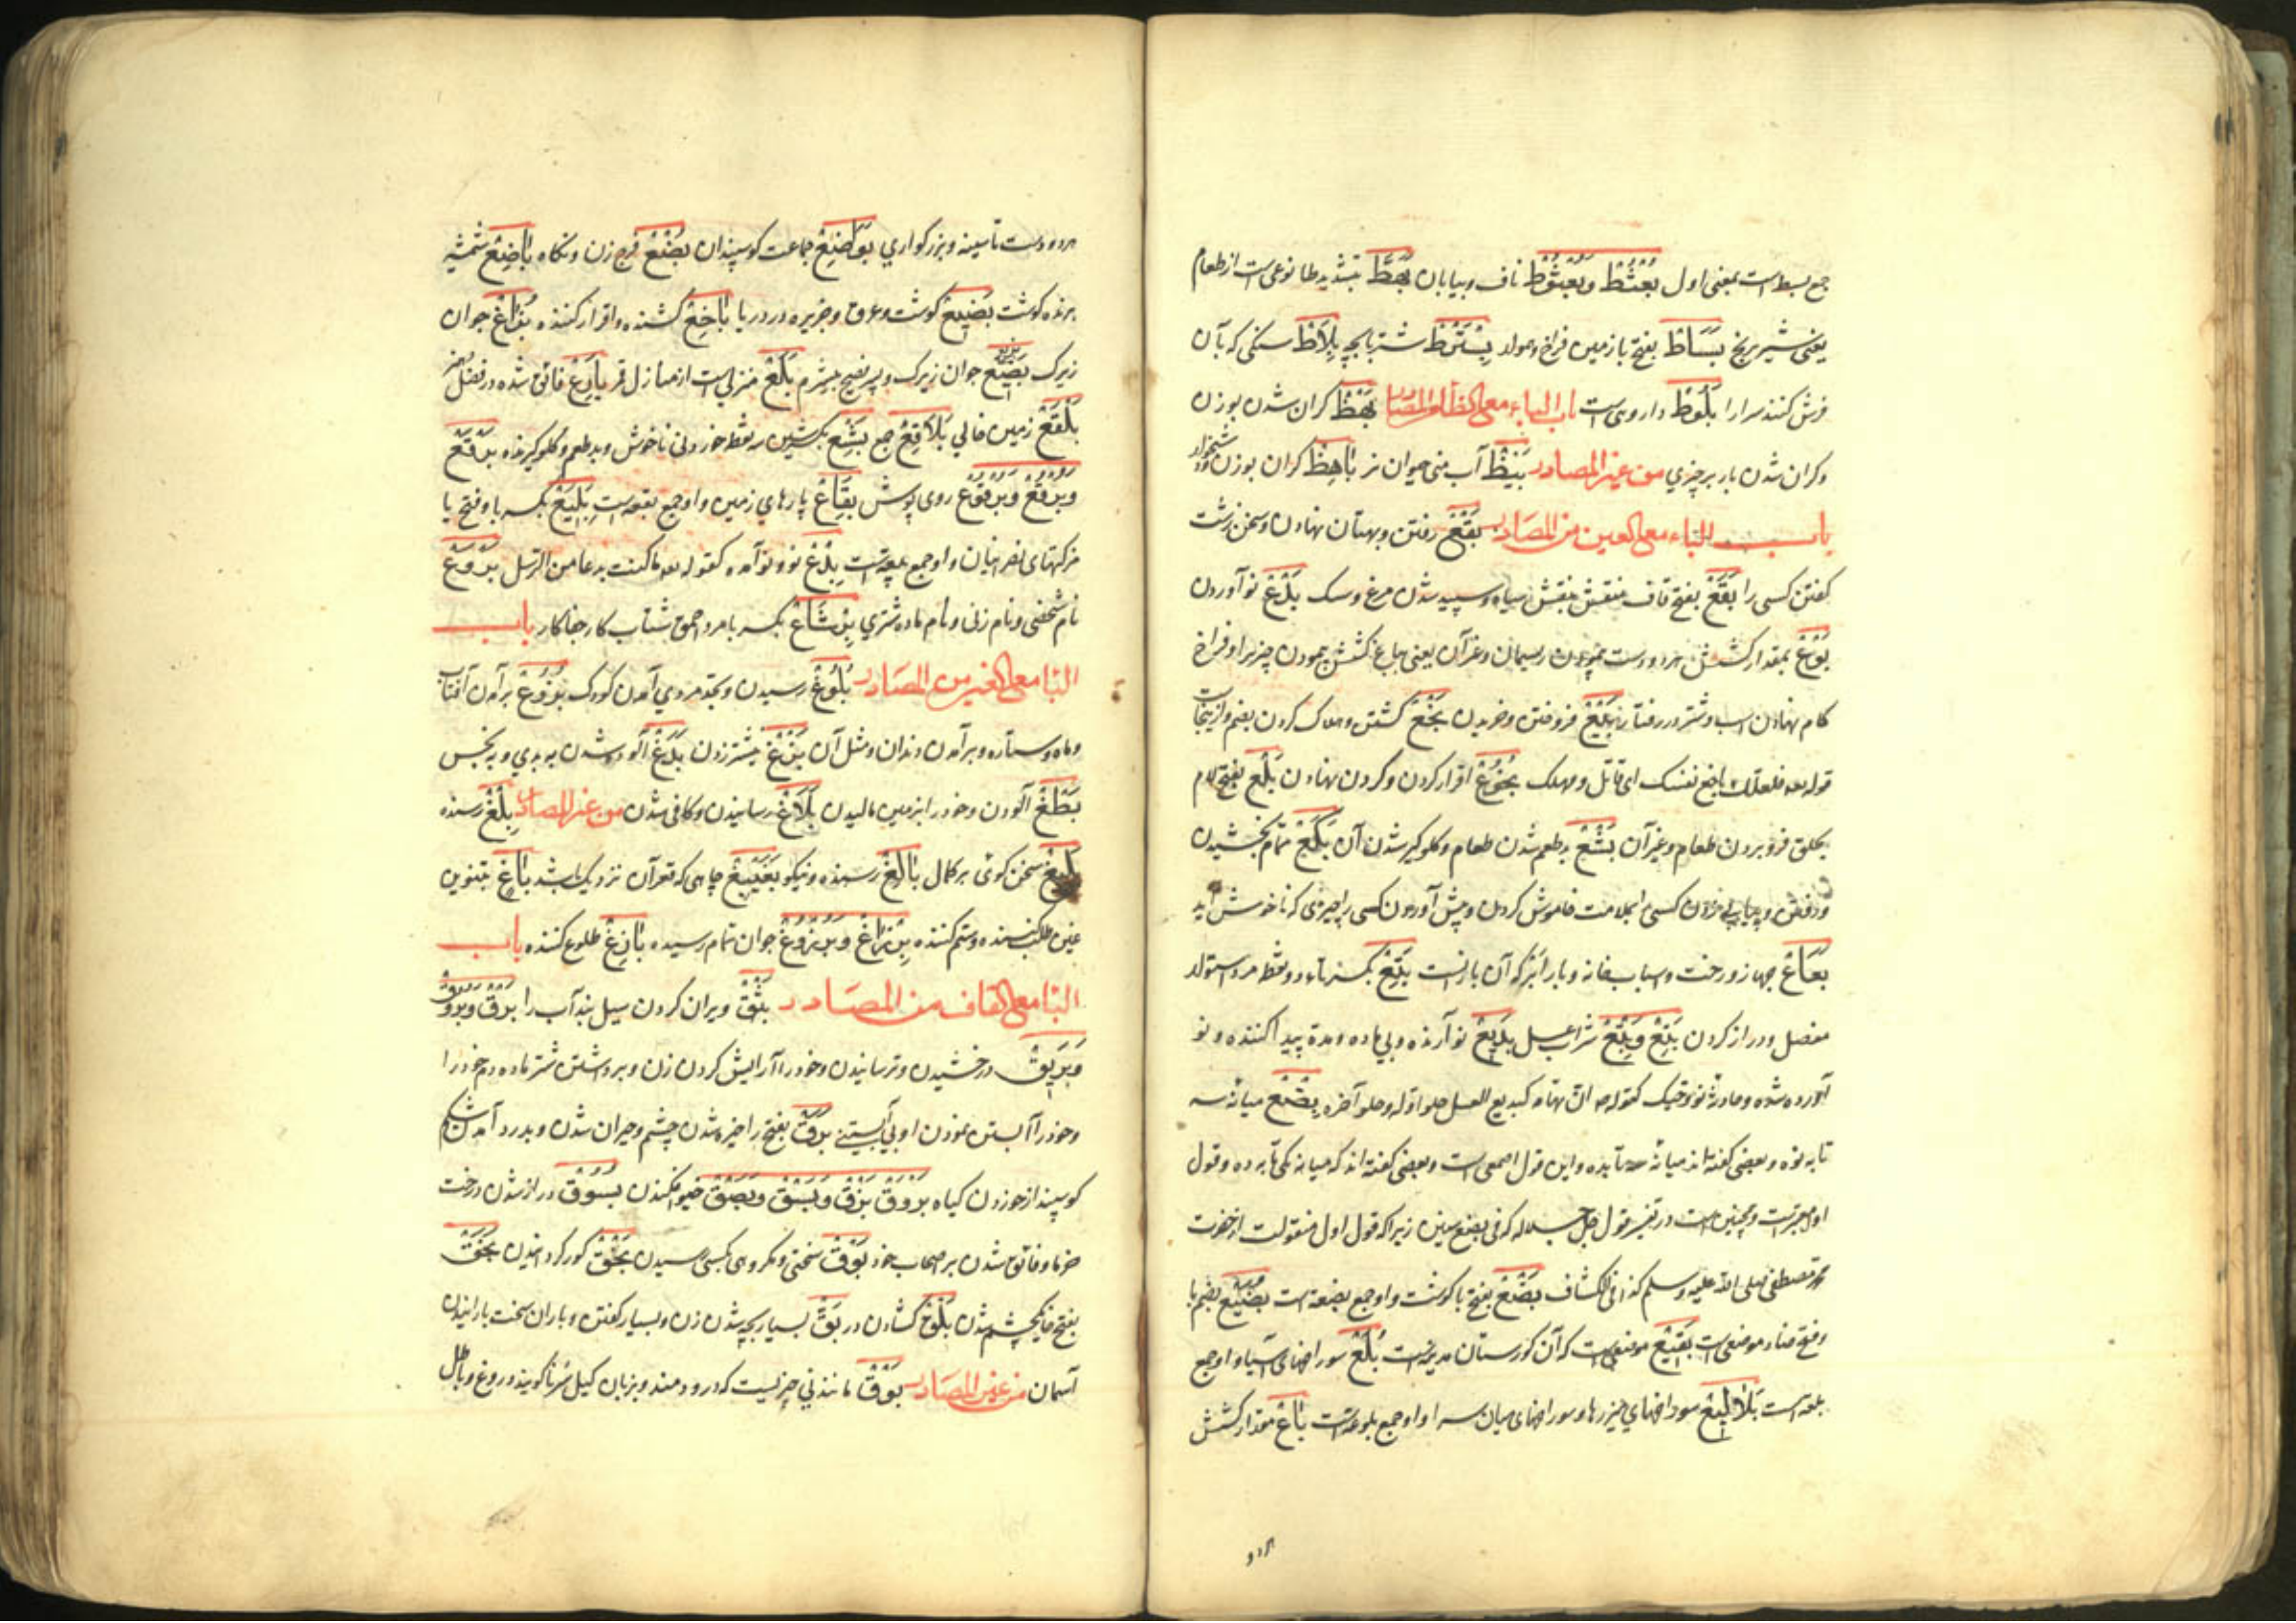 جمع بسط است بمعنی اول بُعْثُطْ وبُعْثُوْط ناف وبیابان بَهَطّ بتشدید طا نوعی است از طعام
یعنی شیر برنج بَسَاطْ بفتح با زمین فراخ وهموار بِسْطْ شتر با بچه بِلَاطْ سنگی که بآن
فرش کنند سرا را بَلُّوْطْ داروی است باب الباء مع الظاء من المصادر بَهْظْ گران شدن بوزن
وگران شدن بار بر چیزی من غیر المصادر بَیْظْ آب منی حیوان نر بَاهِظْ گران بوزن
باب الباء مع العین من المصادر بَقْعْ رفتن وبهتان نهادن وسخن زشت
گفتن کسی را بَقَعْ بفتح قاف منقش بنقش سیاه وسپید شدن مرغ وسک بَدْعْ نو آوردن
بَوْعْ بمقدار کشش هر دو دست پیمودن ریسمان وغیر آن یعنی بباع کشش پیمودن چیزی را وفراخ
کام نهادن اسب وشتر در رفتار بَیْعْ فروختن وخریدن بَخْعْ کشتن وهلاک کردن بغم وازینجاست
قوله تعه فلعلک باخع نفسک ای قاتل ومهلک بُخُوْعْ اقرار کردن وگردن نهادن بَلْعْ بفتح لام
بحلق فرو بردن طعام وغیر آن بَشَعْ بدطعم شدن طعام وگلوگیر شدن آن تمام بخشیدن
کسی را بملامت خاموش کردن وپیش آوردن کسی را چیزی که ناخوش آید
بَعَاعْ جهاز ورخت واسباب خانه وبار ابر که آن بارانست بَتِعْ بکسر تاء دو نقطه مرد استوار
مفصل ودراز گردن بَتْعْ وبِتْعْ شراب عسل بَدِیْعْ نو آرنده وبی ماده ومدة پیدا کننده ونو
آورده شده بِضْعْ میانه سه
تا به نه وبعضی گفته اند میانه سه تا ده واین قول اصمعی است وبعضی گفته اند که میانه یکی تا به ده وقول
اول معتبرست وهمچنین است در تفسیر قول جل جلاله که فی بضع سنین زیرا که قول اول منقولست از حضرت
محمد مصطفی صلی الله علیه وسلم کذا فی الکشاف بَضْعْ بفتح با گوشت واو جمع بضعه است بُضَیْعْ بضم با
وفتح ضاد موضعی است بَقِیْعْ موضعی است که آن گورستان مدینه است بُلَعْ سوراخهای آسیا واو جمع
بلعه است بَلَالِیْعْ سوراخهای چیزها وسوراخهای میان سرا واو جمع بلوعه است بَاعْ مقدار کشش
هر دو
هر دو دست تا سینه وبزرگواری بَوَاضِعْ جماعت کوسپندان بُضْعْ فرج زن ونکاه بَاضِعْ شمشیر
برنده گوشت بَضِیْعْ گوشت وعرق وجزیره در دریا بَاخِعْ کشنده واقرار کننده بُزَاعْ جوان
زیرک بَزِیْعْ جوان زیرک وپسر فصیح بیشرم بُلَعْ منزلی است از منازل قمر بَارِعْ فائق شده در فضل
بَلْقَعْ زمین خالی بَلَاقِعْ جمع بَشِعْ بکسر شین سه نقطه خوردنی ناخوش وبدطعم وگلوگیرنده بُرْقَعْ
وبُرْقُعْ وبُرْقُوْع روی پوش بِقَاعْ پارهای زمین واو جمع بقعه است بِیَعْ بکسر با وفتح یا
کلیساهای نصرانیان واو جمع بیعه است بِدْعْ نو ونو آمده کقوله تعه ما کنت بدعا من الرسل بَرْوَعْ
نام شخصی ونام زنی ونام ماده شتری بِرْشَاعْ بکسر با مرد احمق شتاب کار جفاکار باب
البا مع الغین من المصادر بُلُوْغْ رسیدن وبحد مردی آمدن کودک بُزُوْغْ برآمدن آفتاب
وماه وستاره وبرآمدن دندان ومثل آن بَزْغْ نیشتر زدن بَدَغْ آلوده شدن به بدی وبه نجس
بَطَغْ آلودن وخود را بزمین مالیدن بَلَاغْ رسانیدن وکافی شدن من غیر المصادر بِلْغْ رسنده
بَلِیْغْ سخن گوی بر کمال بَالِغْ رسنده ونیکو بُغَیْبِغْ چاهی که قعر آن نزدیک باشد بَاغٍ بتنوین
غین طلب کننده وستم کننده بِرْزَاغْ وبُرْزُوْغْ جوان تمام رسیده بَازِغْ طلوع کننده باب
البا مع القاف من المصادر بَثْقْ ویران کردن سیل بند آب را بَرْقْ وبُرُوْقْ
وبَرِیْقْ درخشیدن وترسانیدن وخود را آرایش کردن زن وبرداشتن شتر ماده دم خود را
وخود را آبستن نمودن او بی آبستنی بَرَقْ بفتح را خیره شدن چشم وحیران شدن وبدرد آمدن شکم
کوسپند از خوردن گیاه بروق بَزْقْ وبَسْقْ وبَصْقْ خیو افکندن بُسُوْقْ دراز شدن درخت
خرما وفائق شدن بر اصحاب خود بَوْقْ سختی ومکروهی بکسی رسیدن بَخْقْ کور گردانیدن بَخَقْ
بفتح خا یکچشم شدن بَلْقْ گشادن در بَقّ بسیار بچه شدن زن وبسیار گفتن وباران سخت بارانیدن
آسمان من غیر المصادر بُوْقْ مانند نی چیزیست که درو دمند وبزبان گیل سرنا گویند ودروغ وباطل